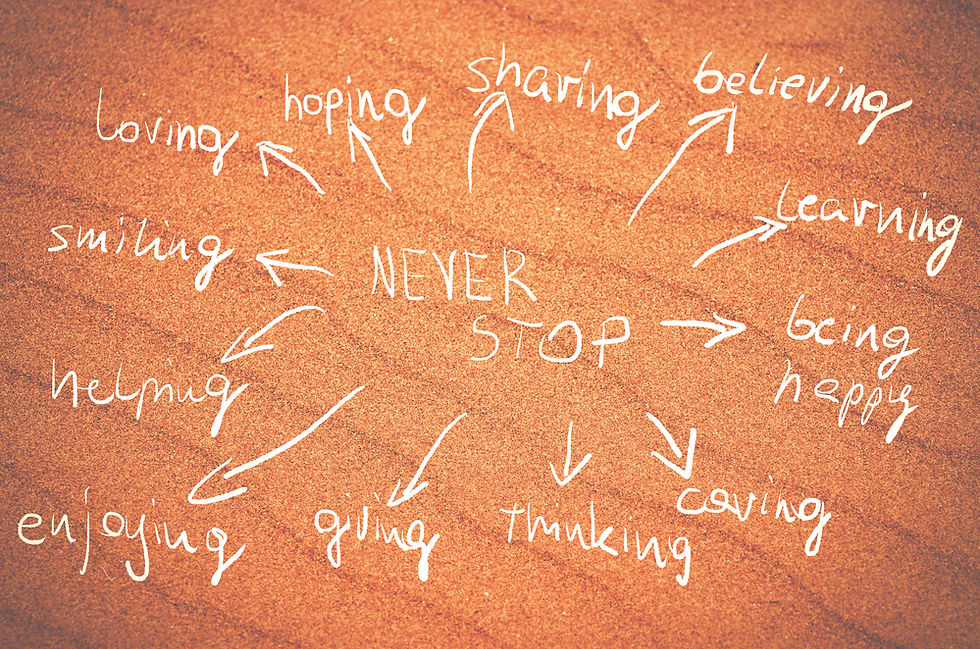 loving
hoping
sharing
believing
learning
smiling
NEVER
STOP
being
happy
helping
enjoying
giving
thinking
caring